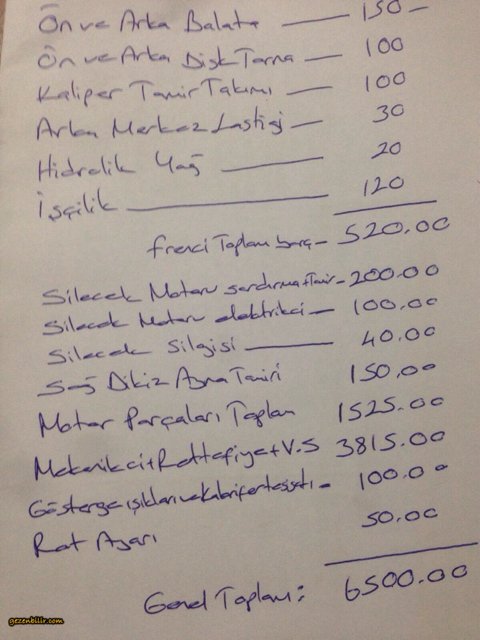 Ön ve Arka Balata — 150 -
Ön ve Arka Disk Torna — 100
Kaliper Tamir Takımı — 100
Arka Merkez Lastiği — 30
Hidrolik Yağ — 20
İşçilik — 120
frenci Toplam borç - 520.00
Silecek Motoru sardırma+tamir - 200.00
Silecek Motoru elektrikci — 100.00
Silecek Silgisi — 40.00
Sağ Dikiz Ayna Tamiri 150.00
Motor Parçaları Toplam 1525.00
Mekanikci+Rektefiye+V.S 3815.00
Gösterge ışıkları ve kalorifer tesisatı - 100.00
Rot Ayarı 50.00
Genel Toplam: 6500.00
gezenbilir.com